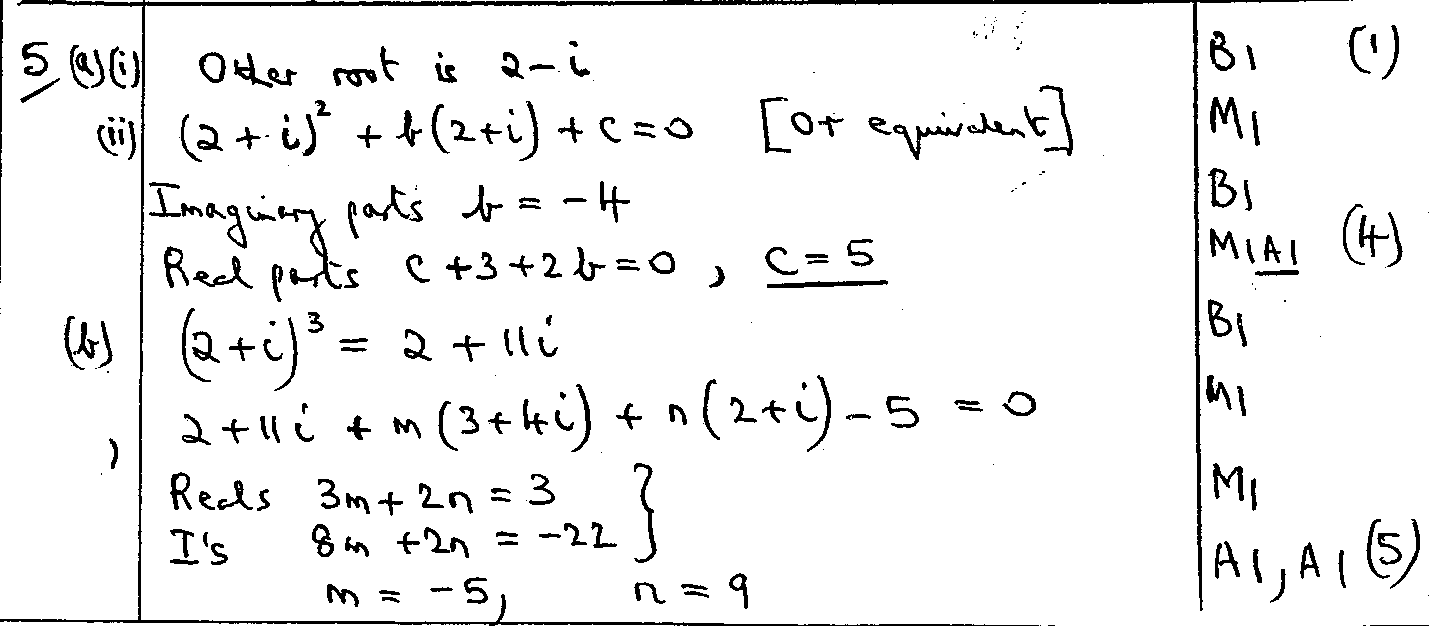 5 (a)(i) Other root is 2-i B1 (1)
(ii) (2+i)² + b(2+i) + c = 0 [or equivalent] M1
Imaginary parts b = -4 B1
Real parts c + 3 + 2b = 0, c = 5 M1A1 (4)
(b) (2+i)³ = 2 + 11i B1
2 + 11i + m(3+4i) + n(2+i) - 5 = 0 M1
Reals 3m + 2n = 3 } M1
I's 8m + 2n = -22
m = -5, n = 9 A1, A1 (5)